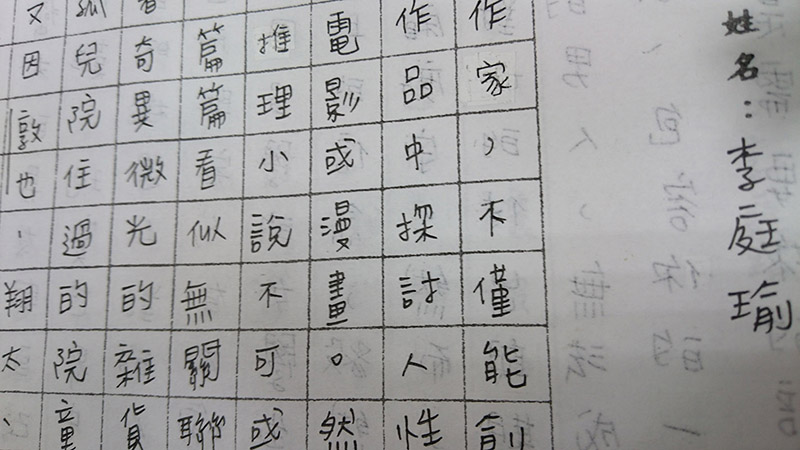 姓名：李庭瑜
作家，不僅能
作品中探討人性
電影或漫畫。然
推理小說不可或
篇篇看似無關聯
奇異微光的雜貨
孤兒院住過的院童
又因敦也、翔太、